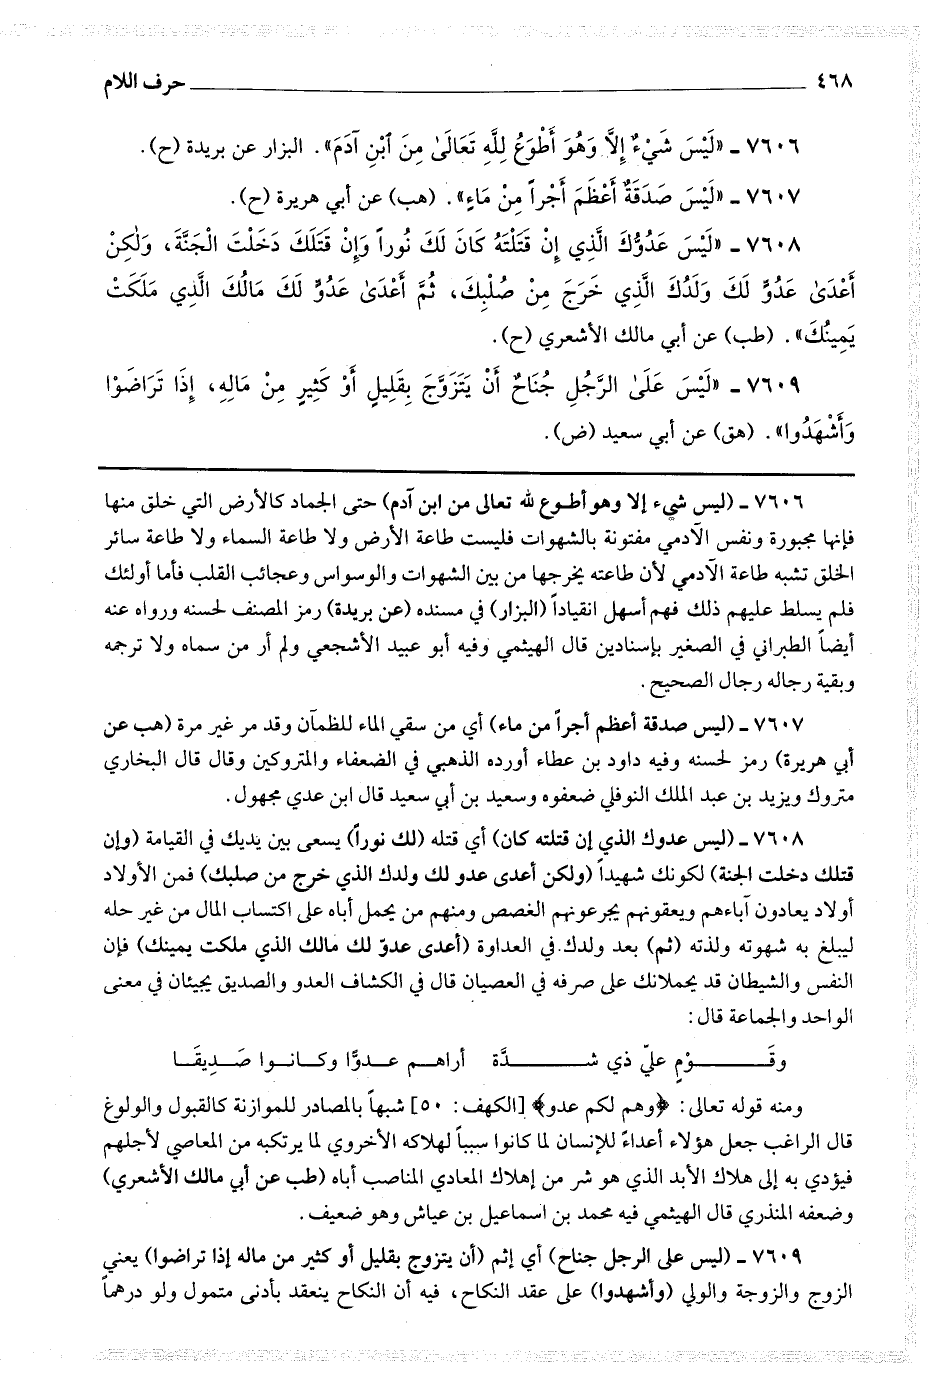 ٤٦٨ حرف اللام
٧٦٠٦ ـ «لَيْسَ شَيْءٌ إِلاَّ وَهُوَ أَطْوَعُ لِلَّهِ تَعَالَىٰ مِنَ ٱبْنِ آدَمَ». البزار عن بريدة (ح).
٧٦٠٧ ـ «لَيْسَ صَدَقَةٌ أَعْظَمَ أَجْراً مِنْ مَاءٍ». (هب) عن أبي هريرة (ح).
٧٦٠٨ ـ «لَيْسَ عَدُوُّكَ الَّذِي إِنْ قَتَلْتَهُ كَانَ لَكَ نُوراً وَإِنْ قَتَلَكَ دَخَلْتَ الْجَنَّةَ، وَلٰكِنْ
أَعْدَىٰ عَدُوٍّ لَكَ وَلَدُكَ الَّذِي خَرَجَ مِنْ صُلْبِكَ، ثُمَّ أَعْدَىٰ عَدُوٍّ لَكَ مَالُكَ الَّذِي مَلَكَتْ
يَمِينُكَ». (طب) عن أبي مالك الأشعري (ح).
٧٦٠٩ ـ «لَيْسَ عَلَىٰ الرَّجُلِ جُنَاحٌ أَنْ يَتَزَوَّجَ بِقَلِيلٍ أَوْ كَثِيرٍ مِنْ مَالِهِ، إِذَا تَرَاضَوْا
وَأَشْهَدُوا». (هق) عن أبي سعيد (ض).
٧٦٠٦ ـ (ليس شيء إلا وهو أطوع لله تعالى من ابن آدم) حتى الجماد كالأرض التي خلق منها
فإنها مجبورة ونفس الآدمي مفتونة بالشهوات فليست طاعة الأرض ولا طاعة السماء ولا طاعة سائر
الخلق تشبه طاعة الآدمي لأن طاعته يخرجها من بين الشهوات والوسواس وعجائب القلب فأما أولئك
فلم يسلط عليهم ذلك فهم أسهل انقياداً (البزار) في مسنده (عن بريدة) رمز المصنف لحسنه ورواه عنه
أيضاً الطبراني في الصغير بإسنادين قال الهيثمي وفيه أبو عبيد الأشجعي ولم أر من سماه ولا ترجمه
وبقية رجاله رجال الصحيح.
٧٦٠٧ ـ (ليس صدقة أعظم أجراً من ماء) أي من سقي الماء للظمآن وقد مر غير مرة (هب عن
أبي هريرة) رمز لحسنه وفيه داود بن عطاء أورده الذهبي في الضعفاء والمتروكين وقال قال البخاري
متروك ويزيد بن عبد الملك النوفلي ضعفوه وسعيد بن أبي سعيد قال ابن عدي مجهول.
٧٦٠٨ ـ (ليس عدوك الذي إن قتلته كان) أي قتله (لك نوراً) يسعى بين يديك في القيامة (وإن
قتلك دخلت الجنة) لكونك شهيداً (ولكن أعدى عدو لك ولدك الذي خرج من صلبك) فمن الأولاد
أولاد يعادون آباءهم ويعقونهم يجرعونهم الغصص ومنهم من يحمل أباه على اكتساب المال من غير حله
ليبلغ به شهوته ولذته (ثم) بعد ولدك في العداوة (أعدى عدوّ لك مالك الذي ملكت يمينك) فإن
النفس والشيطان قد يحملانك على صرفه في العصيان قال في الكشاف العدو والصديق يجيئان في معنى
الواحد والجماعة قال:
وقَــومٍ عليّ ذي شــدَّة أراهــم عــدوًّا وكــانــوا صَــدِيقَــا
ومنه قوله تعالى: ﴿وهم لكم عدو﴾ [الكهف: ٥٠] شبهاً بالمصادر للموازنة كالقبول والولوغ
قال الراغب جعل هؤلاء أعداءً للإنسان لما كانوا سبباً لهلاكه الأخروي لما يرتكبه من المعاصي لأجلهم
فيؤدي به إلى هلاك الأبد الذي هو شر من إهلاك المعادي المناصب أباه (طب عن أبي مالك الأشعري)
وضعفه المنذري قال الهيثمي فيه محمد بن اسماعيل بن عياش وهو ضعيف.
٧٦٠٩ ـ (ليس على الرجل جناح) أي إثم (أن يتزوج بقليل أو كثير من ماله إذا تراضوا) يعني
الزوج والزوجة والولي (وأشهدوا) على عقد النكاح، فيه أن النكاح ينعقد بأدنى متمول ولو درهماً